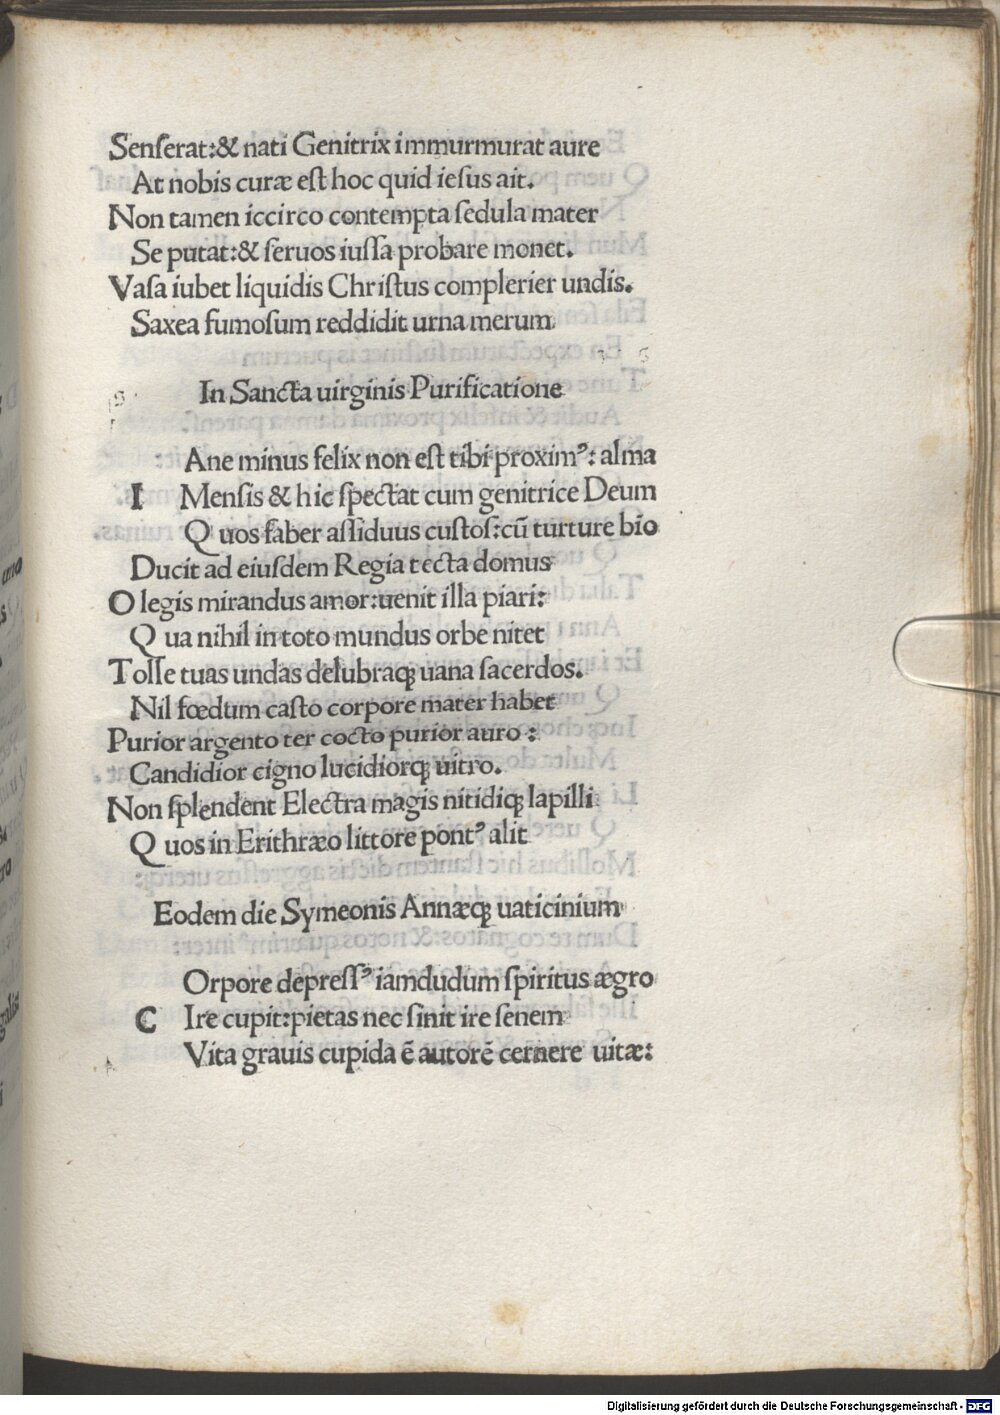 Senſerat:& nati Genitrix immurmurat aure
At nobis curæ eſt hoc quid ieſus ait.
Non tamen iccirco contempta ſedula mater
Se putat:& ſeruos iuſſa probare monet.
Vaſa iubet liquidis Chriſtus complerier undis.
Saxea fumoſum reddidit urna merum
In Sancta uirginis Purificatione
Ane minus felix non eſt tibi proximꝰ: alma
I Menſis & hic ſpectat cum genitrice Deum
Quos faber aſſiduus cuſtoſ:cū turture bīo
Ducit ad eiuſdem Regia tecta domus
O legis mirandus amor:uenit illa piari:
Qua nihil in toto mundus orbe nitet
Tolle tuas undas delubraqꝫ uana ſacerdos.
Nil fœdum caſto corpore mater habet
Purior argento ter cocto purior auro :
Candidior cigno lucidiorqꝫ uitro.
Non ſplendent Electra magis nitidiqꝫ lapilli
Quos in Erithræo littore pontꝰ alit
Eodem die Symeonis Annæqꝫ uaticinium
Orpore depreſſꝰ iamdudum ſpiritus ægro
C Ire cupit:pietas nec ſinit ire ſenem
Vita grauis cupida ē autorē cernere uitæ:
Digitalisierung gefördert durch die Deutsche Forschungsgemeinschaft - DFG